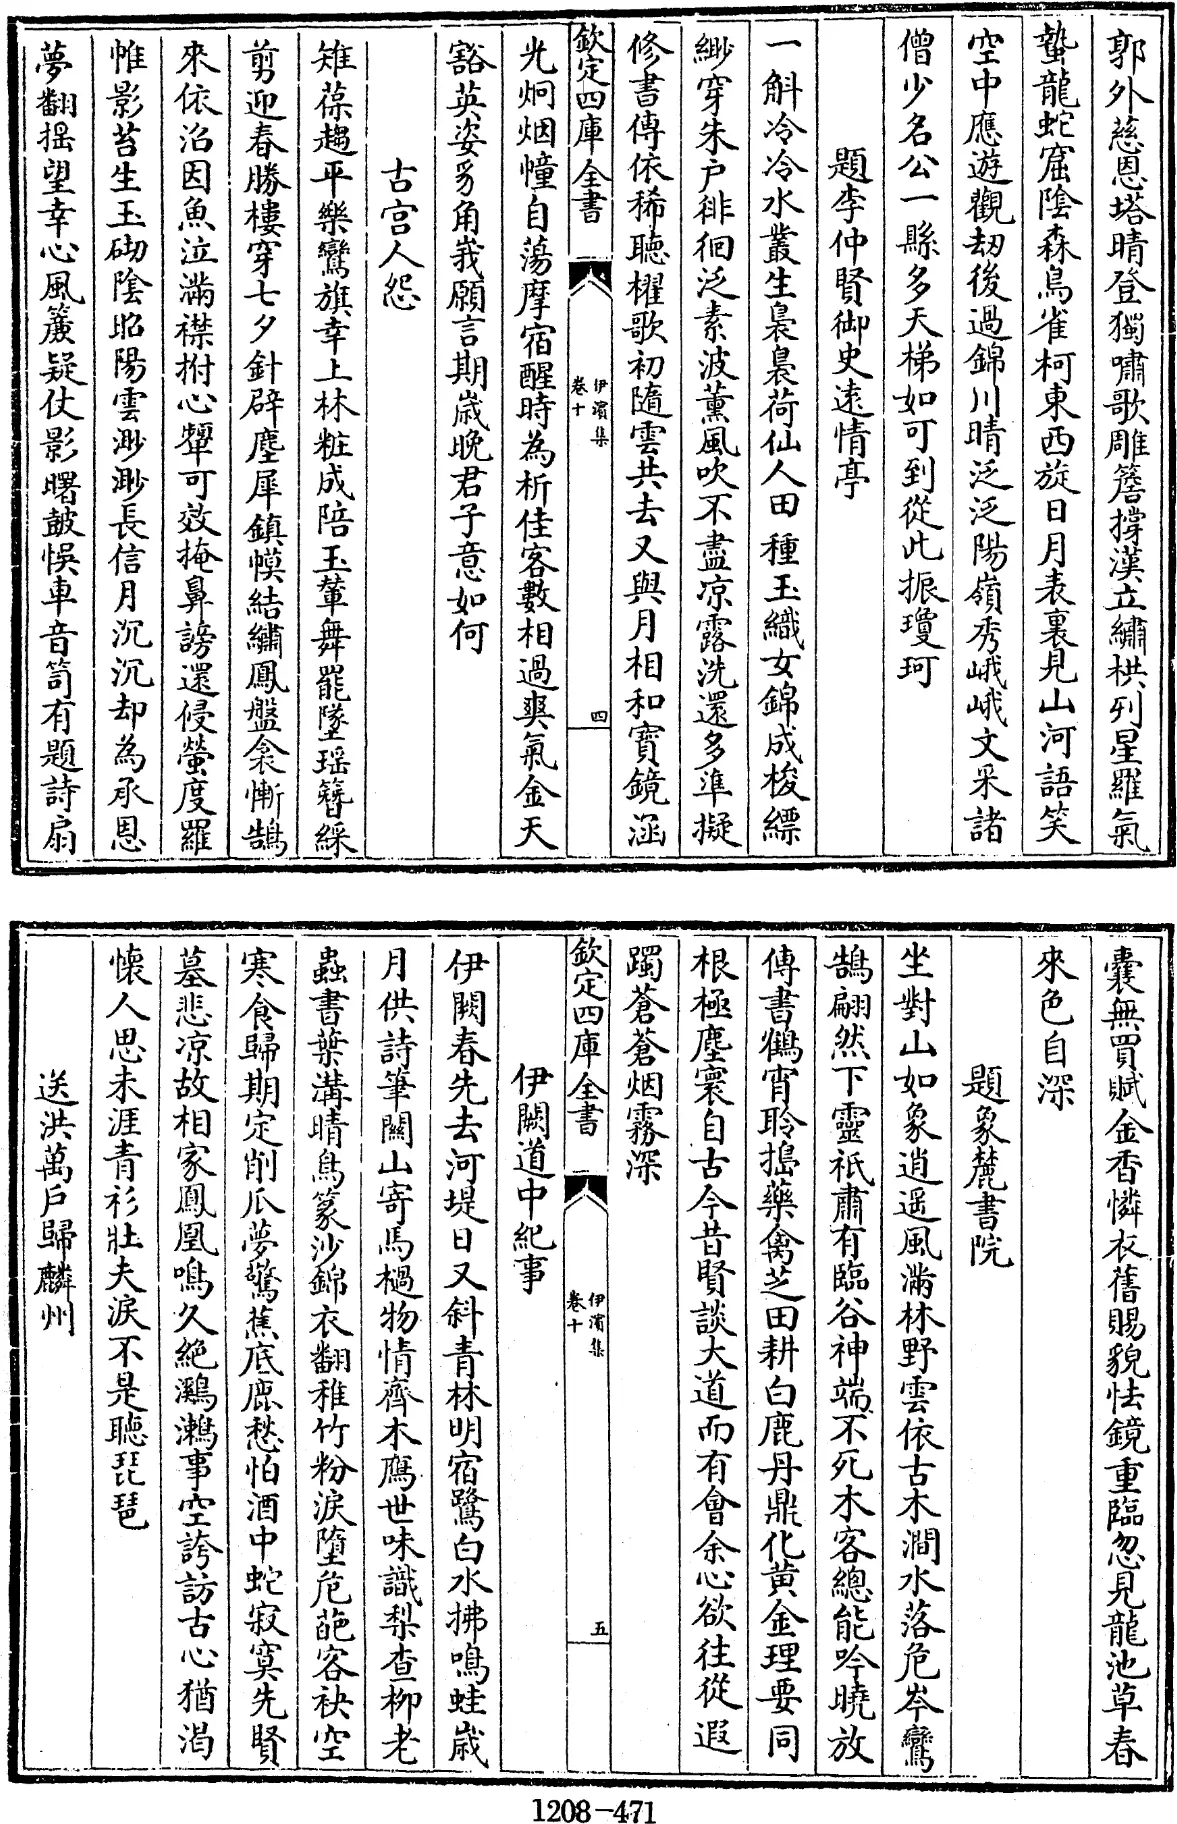 郭外慈恩塔晴登獨嘯歌雕簷撐漢立繡栱列星羅氣
蟄龍蛇窟陰森鳥雀柯東西旋日月表裏見山河語笑
空中應遊觀劫後過錦川晴泛泛陽嶺秀峨峨文采諸
僧少名公一縣多天梯如可到從此振瓊珂
題李仲賢御史遠情亭
一斛冷冷水叢生裊裊荷仙人田種玉織女錦成梭縹
緲穿朱户徘徊泛素波薫風吹不盡凉露洗還多準擬
修書傳依稀聽櫂歌初隨雲共去又與月相和寳鏡涵
欽定四庫全書
伊濱集
卷十
四
光炯烟幢自蕩摩宿醒時為析佳客數相過爽氣金天
豁英姿豸角峩願言期歲晩君子意如何
古宫人怨
雉葆趨平樂鸞旗幸上林粧成陪玉輦舞罷墜瑶簪綵
剪迎春勝樓穿七夕針辟塵犀鎮幙結繡鳳盤衾慚鵠
來依沼因魚泣滿襟拊心顰可效掩鼻謗還侵螢度羅
帷影苔生玉砌隂昭陽雲渺渺長信月沉沉却為承恩
夢翻揺望幸心風簾疑仗影曙皷悞車音笥有題詩扇
囊無買賦金香憐衣舊賜貌怯鏡重臨忽見龍池草春
來色自深
題象麓書院
坐對山如象逍遥風滿林野雲依古木澗水落危岑鸞
鵠翩然下靈祇肅有臨谷神端不死木客總能吟曉放
傳書鶴宵聆搗藥禽芝田耕白鹿丹鼎化黄金理要同
根極塵寰自古今昔賢談大道而有會余心欲往從遐
躅蒼蒼烟霧深
欽定四庫全書
伊濱集
卷十
五
伊闕道中紀事
伊闕春先去河堤日又斜青林明宿鷺白水拂鳴蛙歲
月供詩筆關山寄馬檛物情齊木鴈世味識梨查柳老
蟲書葉溝晴鳥篆沙錦衣翻稚竹粉淚墮危葩客袂空
寒食歸期定削瓜夢驚蕉底鹿愁怕酒中蛇寂寞先賢
墓悲凉故相家鳳凰鳴久絶鸂鶒事空誇訪古心猶渇
懐人思未涯青衫壯夫淚不是聽琵琶
送洪萬戶歸麟州
1208-471